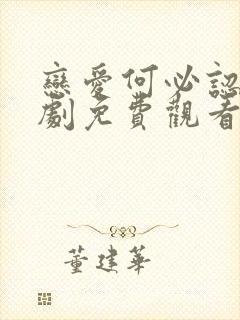 戀愛何必認
劇免費觀看
董建華